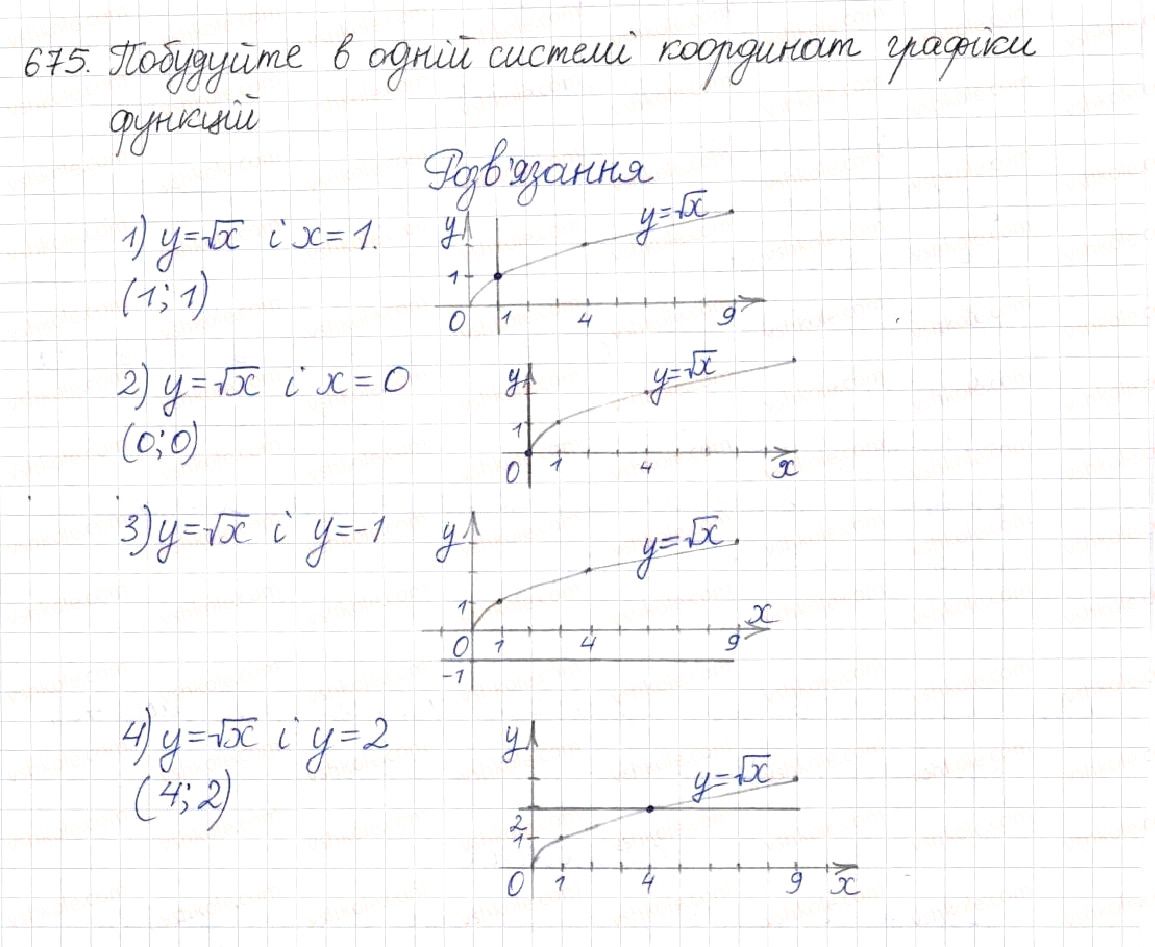 675. Побудуйте в одній системі координат графіки
функцій
Розв'язання
1) y=√x і x=1.
(1; 1)
y
y=√x
1
0 1 4 9
2) y=√x і x=0
(0; 0)
y
y=√x
1
0 1 4 x
3) y=√x і y=-1
y
y=√x
1
x
0 1 4 9
-1
4) y=√x і y=2
(4; 2)
y
y=√x
2
1
0 1 4 9 x